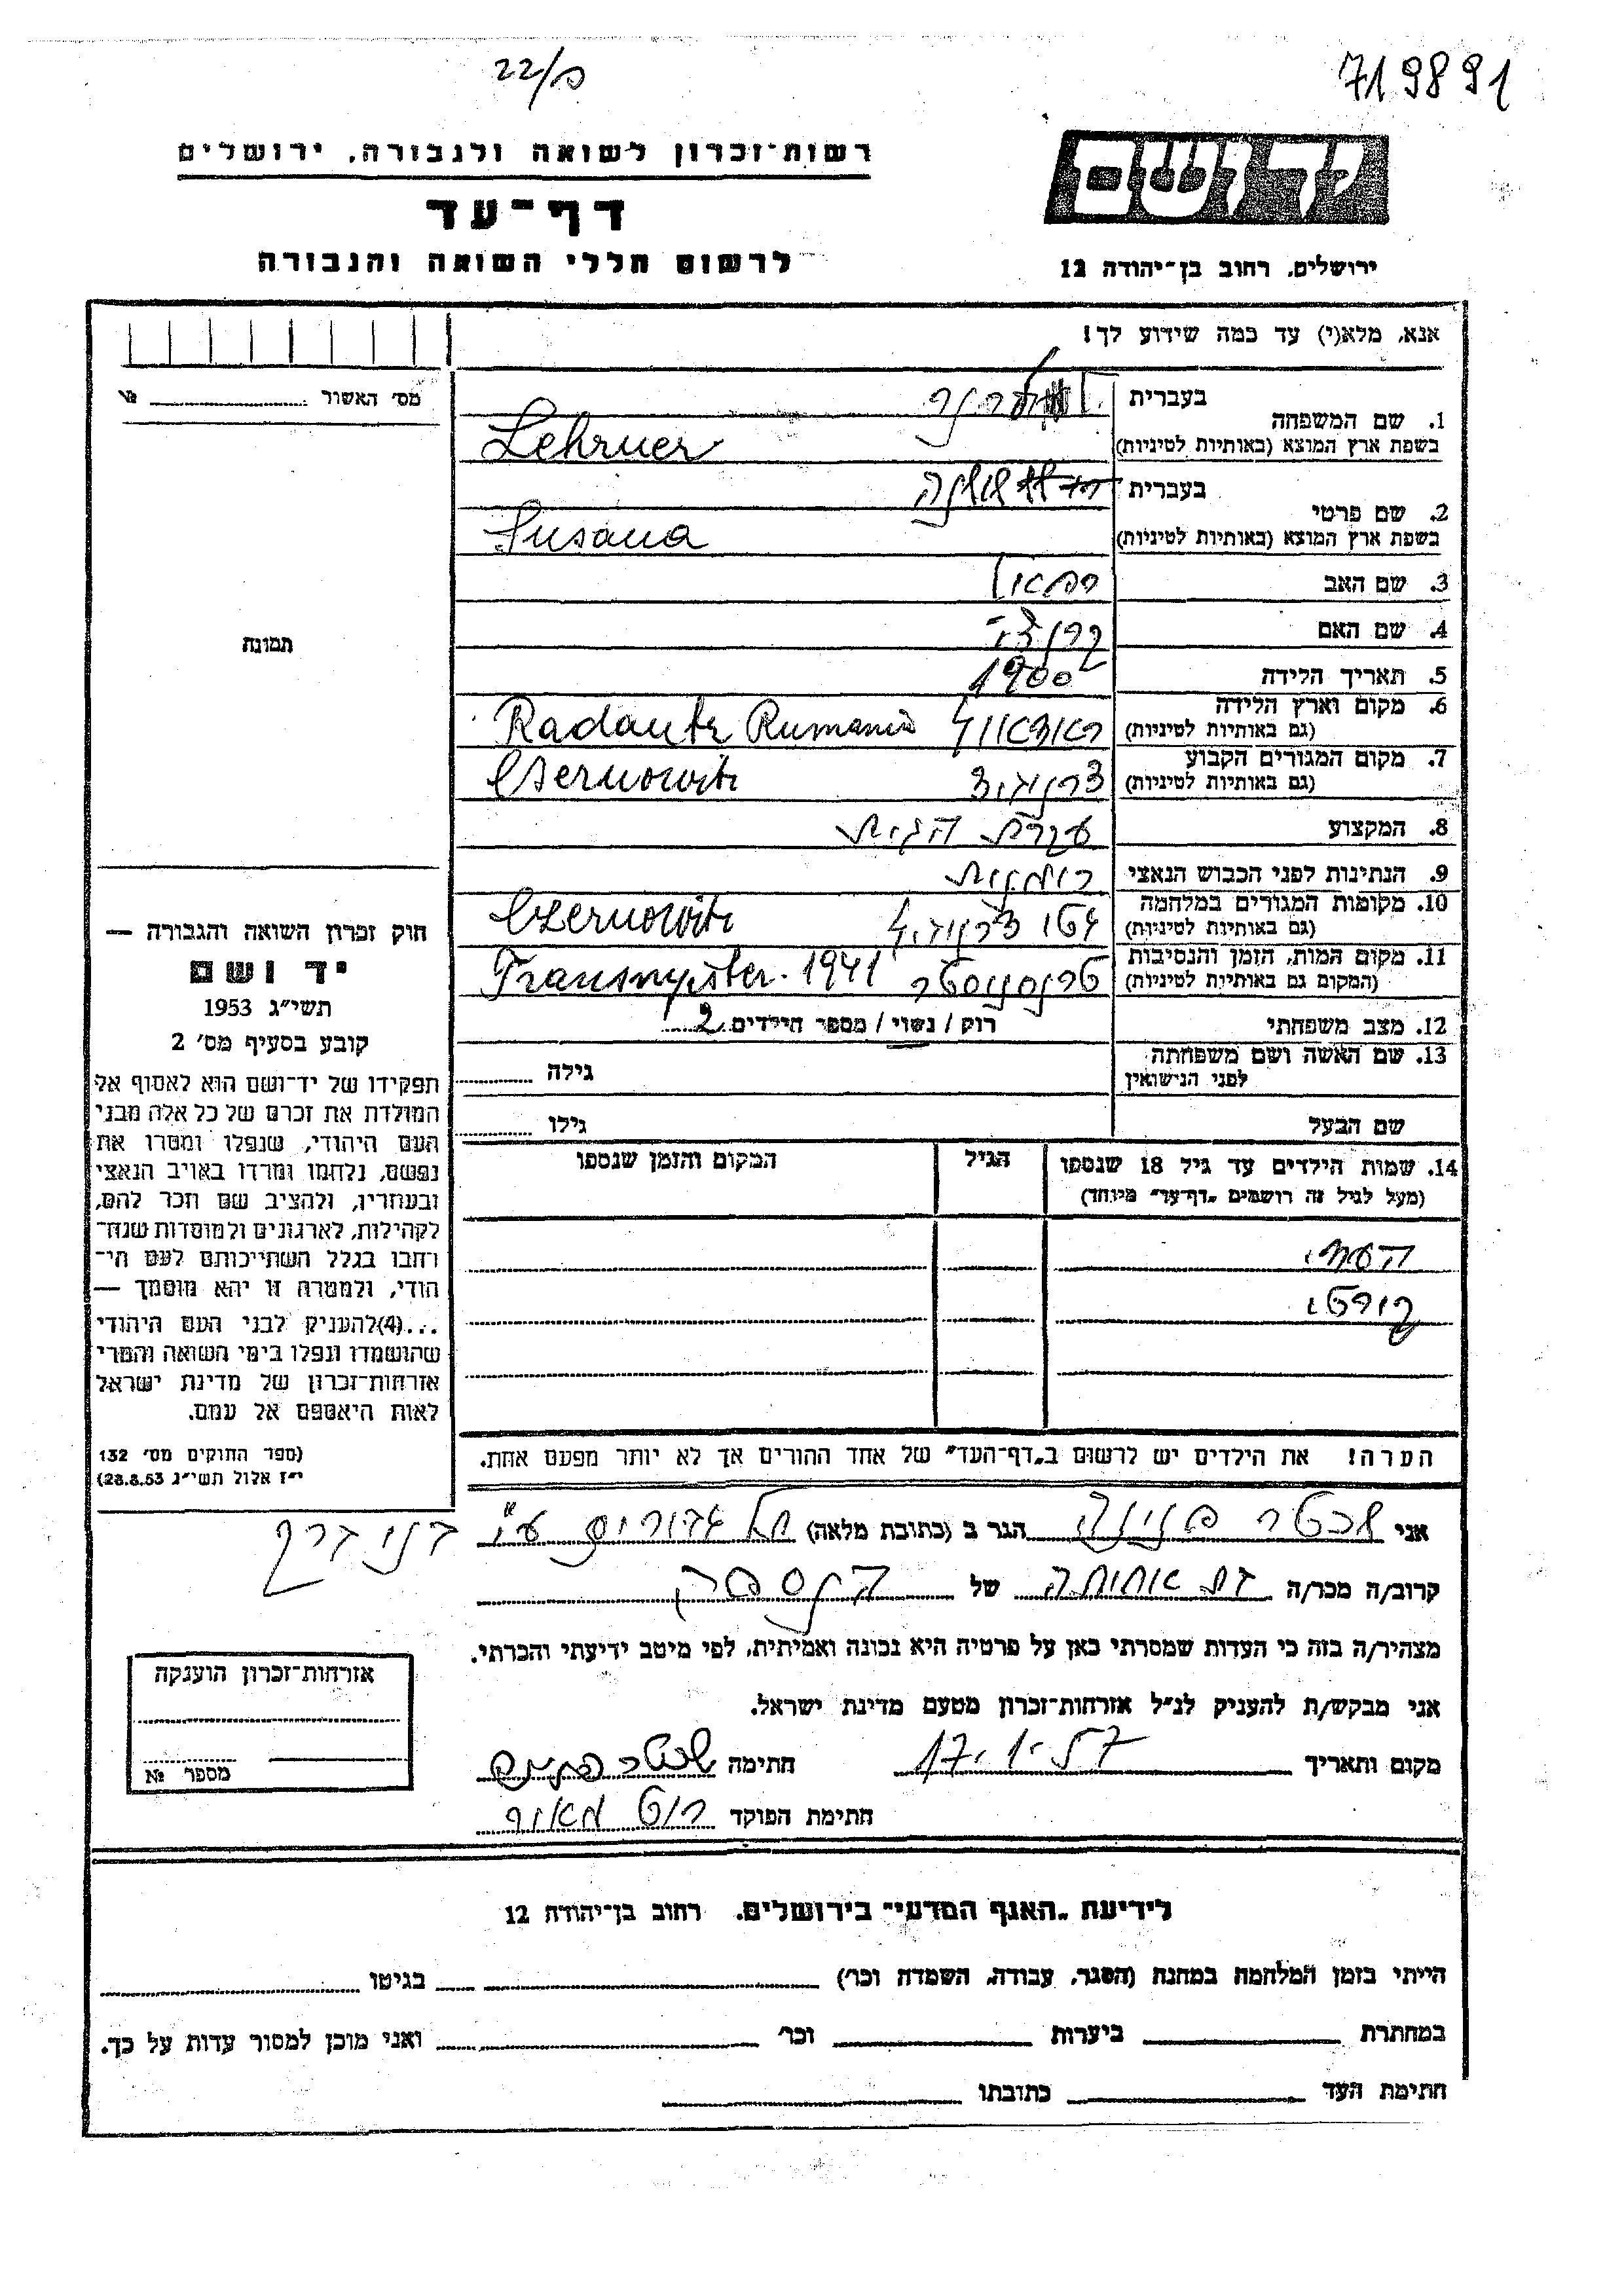 22/פ
719891
רשות־זכרון לשואה ולגבורה, ירושלים
דף־עד
לרשום חללי השואה והגבורה
יד ושם
ירושלים, רחוב בן־יהודה 12
אנא, מלא(י) עד כמה שידוע לך!
מס' האשור № 
תמונה
1. שם המשפחה
בעברית לרנר
בשפת ארץ המוצא (באותיות לטיניות) Lehrner
2. שם פרטי
בעברית
בשפת ארץ המוצא (באותיות לטיניות) Susana
3. שם האב רפאל
4. שם האם
5. תאריך הלידה 1900
6. מקום וארץ הלידה
(גם באותיות לטיניות) Radautz Rumania
7. מקום המגורים הקבוע צרנוביץ
(גם באותיות לטיניות) Czernowitz
8. המקצוע עקרת הבית
9. הנתינות לפני הכבוש הנאצי רומנית
10. מקומות המגורים במלחמה גטו צרנוביץ
(גם באותיות לטיניות) Czernowitz
11. מקום המות, הזמן והנסיבות טרנסניסטר
(המקום גם באותיות לטיניות) Transnyister. 1941
12. מצב משפחתי רוק / נשוי / מספר הילדים 2
13. שם האשה ושם משפחתה
לפני הנישואין גילה
שם הבעל גילו
14. שמות הילדים עד גיל 18 שנספו
(מעל לגיל זה רושמים „דף־עד" מיוחד)
הגיל
המקום והזמן שנספו
קורטי
הערה! את הילדים יש לרשום ב„דף־העד" של אחד ההורים אך לא יותר מפעם אחת.
חוק זכרון השואה והגבורה —
יד ושם
תשי"ג 1953
קובע בסעיף מס' 2
תפקידו של יד־ושם הוא לאסוף אל
המולדת את זכרם של כל אלה מבני
העם היהודי, שנפלו ומסרו את
נפשם, נלחמו ומרדו באויב הנאצי
ובעוזריו, ולהציב שם וזכר להם,
לקהילות, לארגונים ולמוסדות שנח־
רחבו בגלל השתייכותם לעם הי־
הודי, ולמטרה זו יהא מוסמך —
...(4)להעניק לבני העם היהודי
שהושמדו ונפלו בימי השואה והמרי
אזרחות־זכרון של מדינת ישראל
לאות היאספם אל עמם.
(ספר החוקים מס' 132
י"ז אלול תשי"ג 28.8.53)
אני שכטר פנינה הגר ב (כתובת מלאה)
קרוב/ה מכר/ה בת אחותה של הנספה
מצהיר/ה בזה כי העדות שמסרתי כאן על פרטיה היא נכונה ואמיתית, לפי מיטב ידיעתי והכרתי.
אני מבקש/ת להעניק לנ"ל אזרחות־זכרון מטעם מדינת ישראל.
מקום ותאריך 17.1.57 חתימה
חתימת הפוקד
אזרחות־זכרון הוענקה
מספר №
לידיעת „האגף המדעי" בירושלים, רחוב בן־יהודה 12
הייתי בזמן המלחמה במחנה (הסגר, עבודה, השמדה וכו') בגיטו
במחתרת ביערות וכו' ואני מוכן למסור עדות על כך.
חתימת העד כתובתו